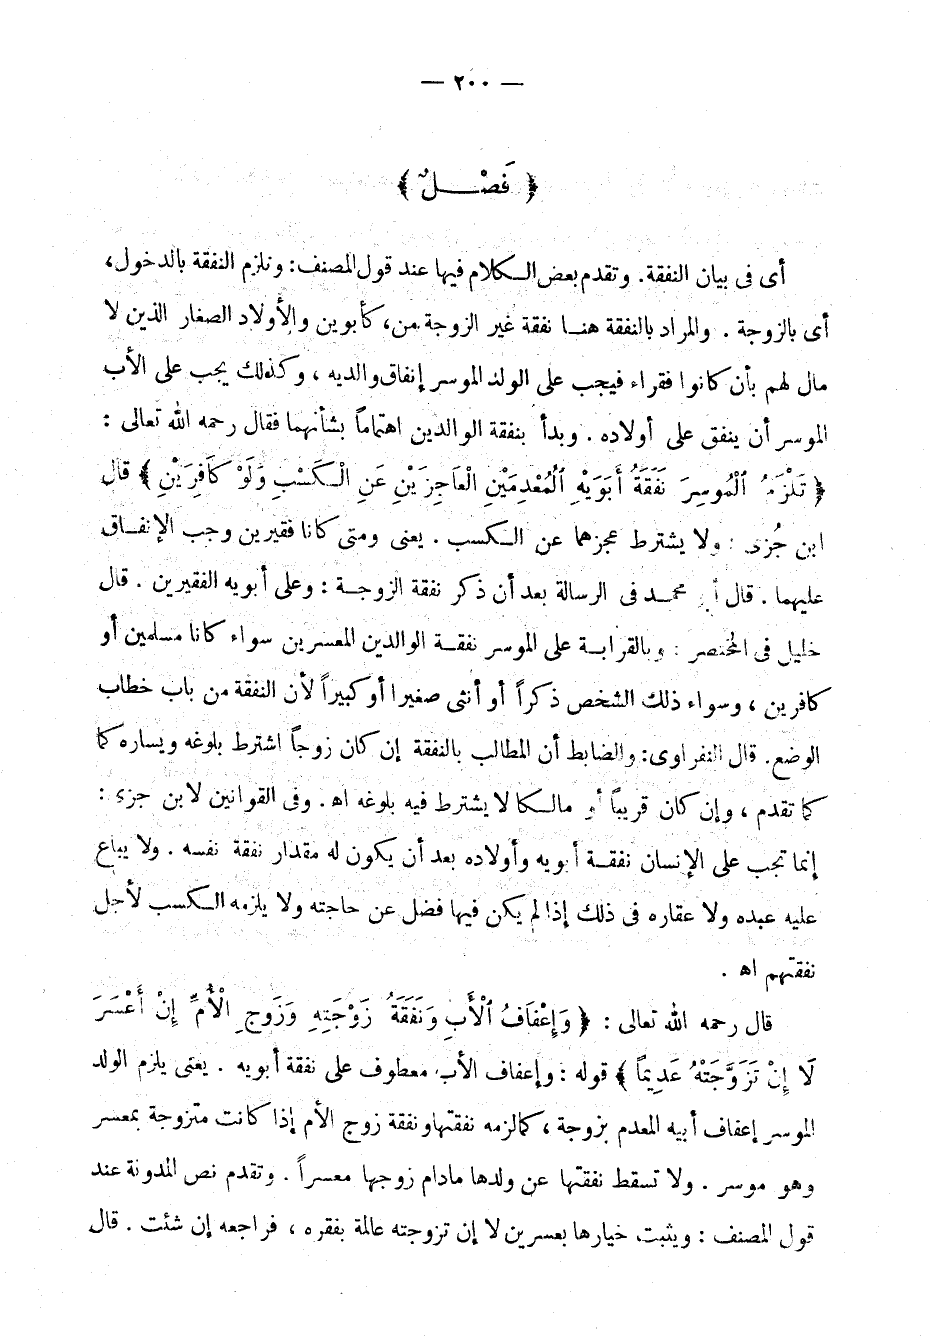 — ٢٠٠ —
﴿ فَصْـــلٌ ﴾
أى فى بيان النفقة. وتقدم بعض الكلام فيها عند قول المصنف: وتلزم النفقة بالدخول،
أى بالزوجة . والمراد بالنفقة هنا نفقة غير الزوجة من، كأبوين والأولاد الصغار الذين لا
مال لهم بأن كانوا فقراء فيجب على الولد الموسر إنفاق والديه ، وكذلك يجب على الأب
الموسر أن ينفق على أولاده . وبدأ بنفقة الوالدين اهتماماً بشأنهما فقال رحمه الله تعالى :
﴿ تَلْزَمُ ٱلْمُوسِرَ نَفَقَةُ أَبَوَيْهِ ٱلْمُعْدِمَيْنِ الْعَاجِزَيْنِ عَنِ الْكَسْبِ وَلَوْ كَافِرَيْنِ ﴾ قال
ابن جُزى : ولا يشترط عجزهما عن الكسب . يعنى ومتى كانا فقيرين وجب الإنفاق
عليهما . قال أبو محمد فى الرسالة بعد أن ذكر نفقة الزوجة : وعلى أبويه الفقيرين . قال
خليل فى المختصر : وبالقرابة على الموسر نفقة الوالدين المعسرين سواء كانا مسلمين أو
كافرين ، وسواء ذلك الشخص ذكراً أو أنثى صغيرا أو كبيراً لأن النفقة من باب خطاب
الوضع. قال النفراوى: والضابط أن المطالب بالنفقة إن كان زوجاً اشترط بلوغه ويساره كما
كما تقدم ، وإن كان قريباً أو مالكا لا يشترط فيه بلوغه اه. وفى القوانين لابن جزى :
إنما تجب على الإنسان نفقة أبويه وأولاده بعد أن يكون له مقدار نفقة نفسه . ولا يباع
عليه عبده ولا عقاره فى ذلك إذا لم يكن فيها فضل عن حاجته ولا يلزمه الكسب لأجل
نفقتهم اه .
قال رحمه الله تعالى : ﴿ وَإِعْفَافُ ٱلْأَبِ وَنَفَقَةُ زَوْجَتِهِ وَزَوجِ الْأُمِّ إِنْ أَعْسَرَ
لَا إِنْ تَزَوَّجَتْهُ عَدِيمًا ﴾ قوله : وإعفاف الأب معطوف على نفقة أبويه . يعنى يلزم الولد
الموسر إعفاف أبيه المعدم بزوجة ، كما لزمه نفقتها ونفقة زوج الأم إذا كانت متزوجة بمعسر
وهو موسر . ولا تسقط نفقتها عن ولدها مادام زوجها معسراً . وتقدم نص المدونة عند
قول المصنف : ويثبت خيارها بعسرين لا إن تزوجته عالمة بفقره ، فراجعه إن شئت . قال